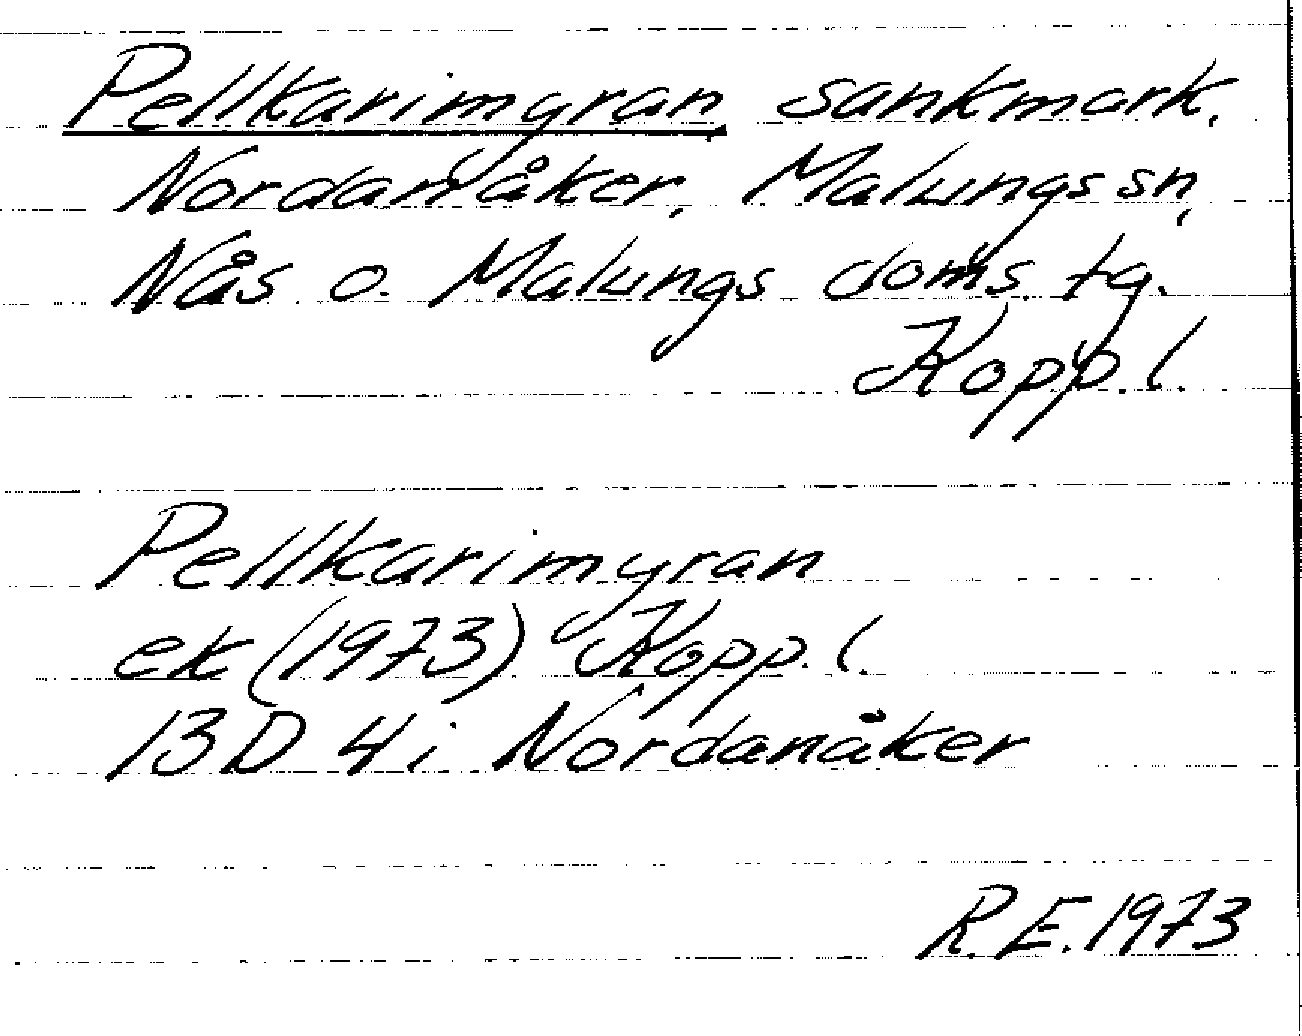 Pellkarimyran, sankmark,
Nordanåker, Malungs sn,
Nås o. Malungs doms. tg.
Kopp. l.
Pellkarimyran
ek (1973) Kopp. l.
13D 4i Nordanåker
R.E. 1973